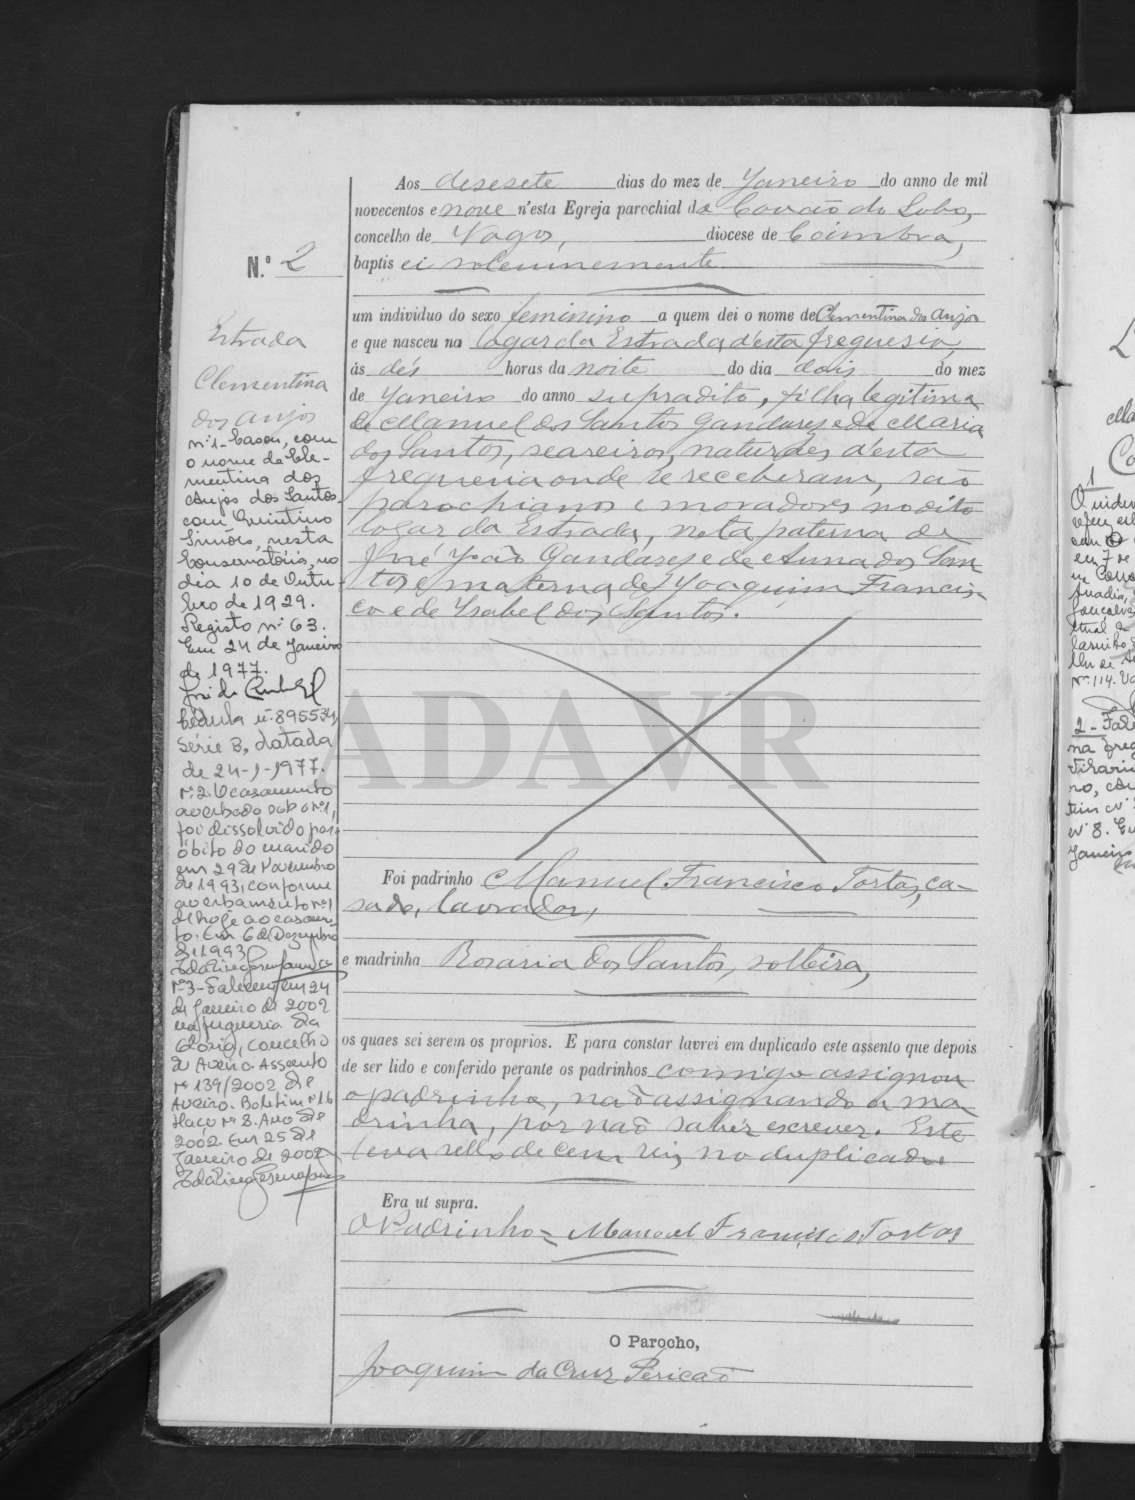 Aos desesete dias do mez de Janeiro do anno de mil
novecentos e nove n'esta Egreja parochial da Covão do Lobo,
concelho de Vagos, diocese de Coimbra,
baptisei solemnemente
N.º 2
um individuo do sexo feminino a quem dei o nome de Clementina dos Anjos
e que nasceu no logar da Estrada d'esta freguesia
ás dés horas da noite do dia dois do mez
de Janeiro do anno supradito, filha legitima
de Manuel dos Santos Gandarez e de Maria
dos Santos, seareiros, naturaes d'esta
freguesia onde se receberam, são
parochianos e moradores no dito
logar da Estrada, neta paterna de
José João Gandarez e de Anna dos San
tos e materna de Joaquim Francis
co e de Isabel dos Santos.
Estrada
Clementina
dos Anjos
nº 1 - Casou, com
o nome de Cle-
mentina dos
Anjos dos Santos
com Quintino
Simões, nesta
Conservatória, no
dia 10 de Outu
bro de 1929.
Registo nº 63.
Em 24 de Janeiro
de 1977.
Cédula nº 895534,
série B, datada
de 24-1-1977.
Nº 2. O casamento
averbado sob o nº 1,
foi dissolvido por
óbito do marido
em 29 de Novembro
de 1993, conforme
averbamento nº 1
de hoje ao casamen
to. Em 6 de Dezembro
de 1993
Nº 3 - Faleceu em 24
de Janeiro de 2002
na freguesia da
Glória, concelho
de Aveiro. Assento
nº 139/2002 de
Aveiro. Boletim nº 16
Maço nº 8. Ano de
2002. Em 25 de
Janeiro de 2002
ADAVR
Foi padrinho Manuel Francisco Tortas, ca-
sado, lavrador,
e madrinha Rosaria dos Santos, solteira,
os quaes sei serem os proprios. E para constar lavrei em duplicado este assento que depois
de ser lido e conferido perante os padrinhos comigo assignou
o padrinho, não assignando a ma
drinha, por não saber escrever. Este
leva sello de cem reis no duplicado
Era ut supra.
O Padrinho = Manoel Francisco Tortas
O Parocho,
Joaquim da Cruz Pericão